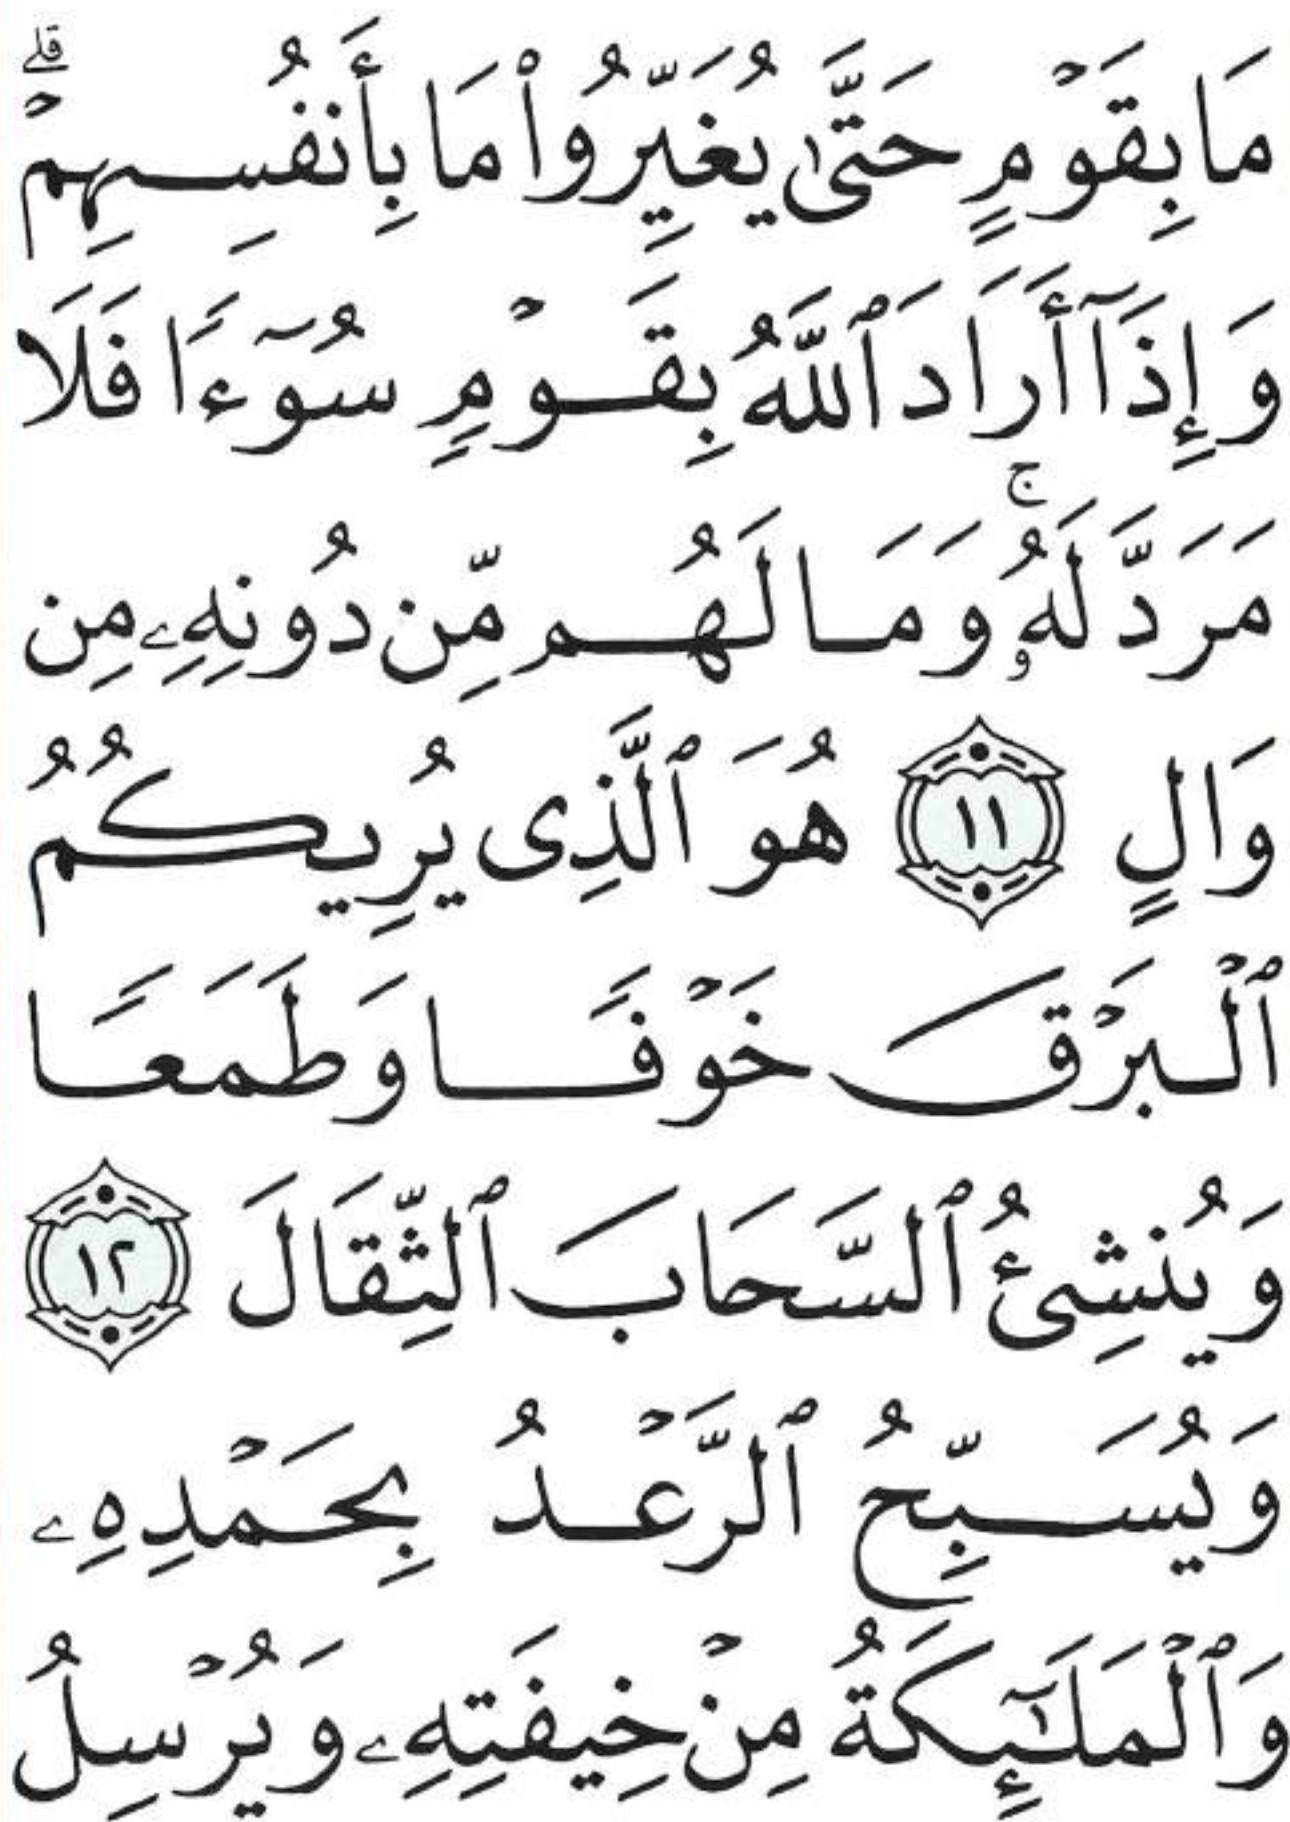 مَا بِقَوۡمٍ حَتَّىٰ يُغَيِّرُواْ مَا بِأَنفُسِهِمۡۗ
وَإِذَآ أَرَادَ ٱللَّهُ بِقَوۡمٍ سُوٓءًا فَلَا
مَرَدَّ لَهُۥۚ وَمَا لَهُم مِّن دُونِهِۦ مِن
وَالٍ ١١ هُوَ ٱلَّذِى يُرِيكُمُ
ٱلۡبَرۡقَ خَوۡفًا وَطَمَعًا
وَيُنشِئُ ٱلسَّحَابَ ٱلثِّقَالَ ١٢
وَيُسَبِّحُ ٱلرَّعۡدُ بِحَمۡدِهِۦ
وَٱلۡمَلَـٰٓئِكَةُ مِنۡ خِيفَتِهِۦ وَيُرۡسِلُ